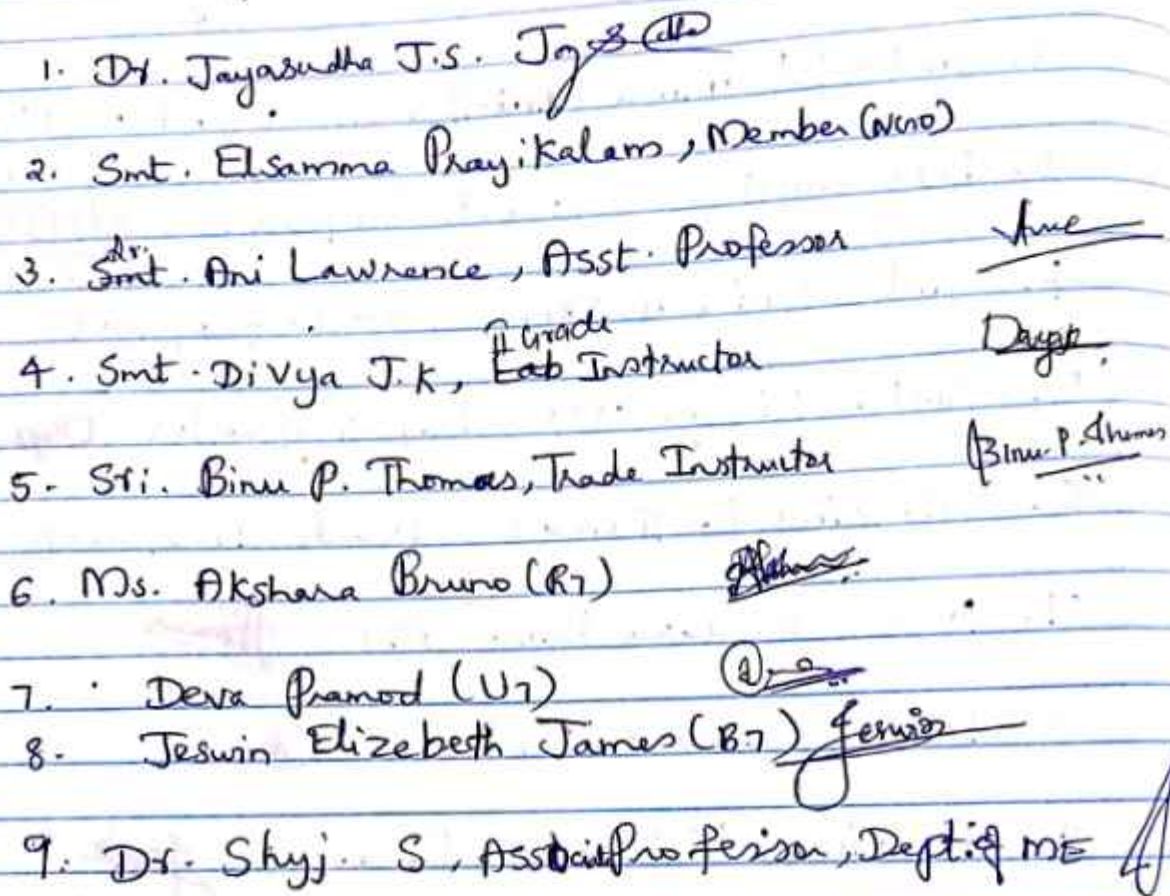 1. Dr. Jayasudha J.S.
2. Smt. Elsamma Prayikalam, Member (NGO)
Dr.
3. Smt. Ani Lawrence, Asst. Professor
II Grade
4. Smt. Divya J.K, Lab Instructor
5. Sri. Binu P. Thomas, Trade Instructor Binu P. Thomas
6. Ms. Akshara Bruno (R7)
7. Deva Pramod (U7)
8. Jeswin Elizebeth James (B7) Jeswin
9. Dr. Shyj. S, Professor, Dept. of ME